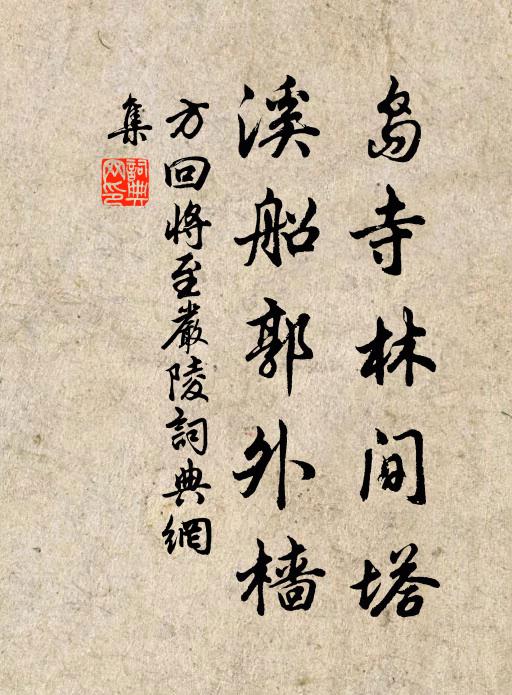 島寺林間塔
溪船郭外檣
方回將至嚴陵詞典網
集
詞典
網印